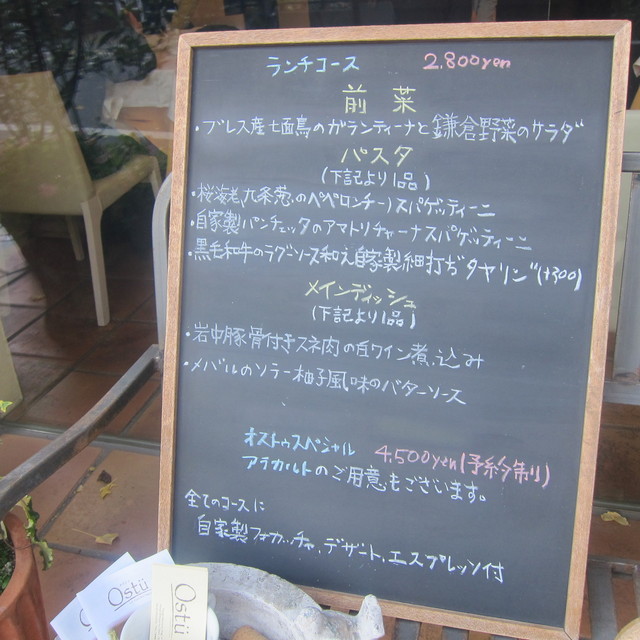 ランチコース 2.800yen
前菜
・ブレス産七面鳥のガランティーナと鎌倉野菜のサラダ
パスタ
(下記より1品)
・桜海老、九条葱のペペロンチーノスパゲッティーニ
・自家製パンチェッタのアマトリチャーナスパゲッティーニ
・黒毛和牛のラグーソース和え自家製細打ち"タヤリン"(+300)
メインディッシュ
(下記より1品)
・岩中豚骨付きスネ肉の白ワイン煮込み
・メバルのソテー柚子風味のバターソース
オストゥスペシャル 4.500yen(予約制り)
アラカルトのご用意もございます。
全てのコースに
自家製フォカッチャ、デザート、エスプレッソ付
Ostü
Ostü